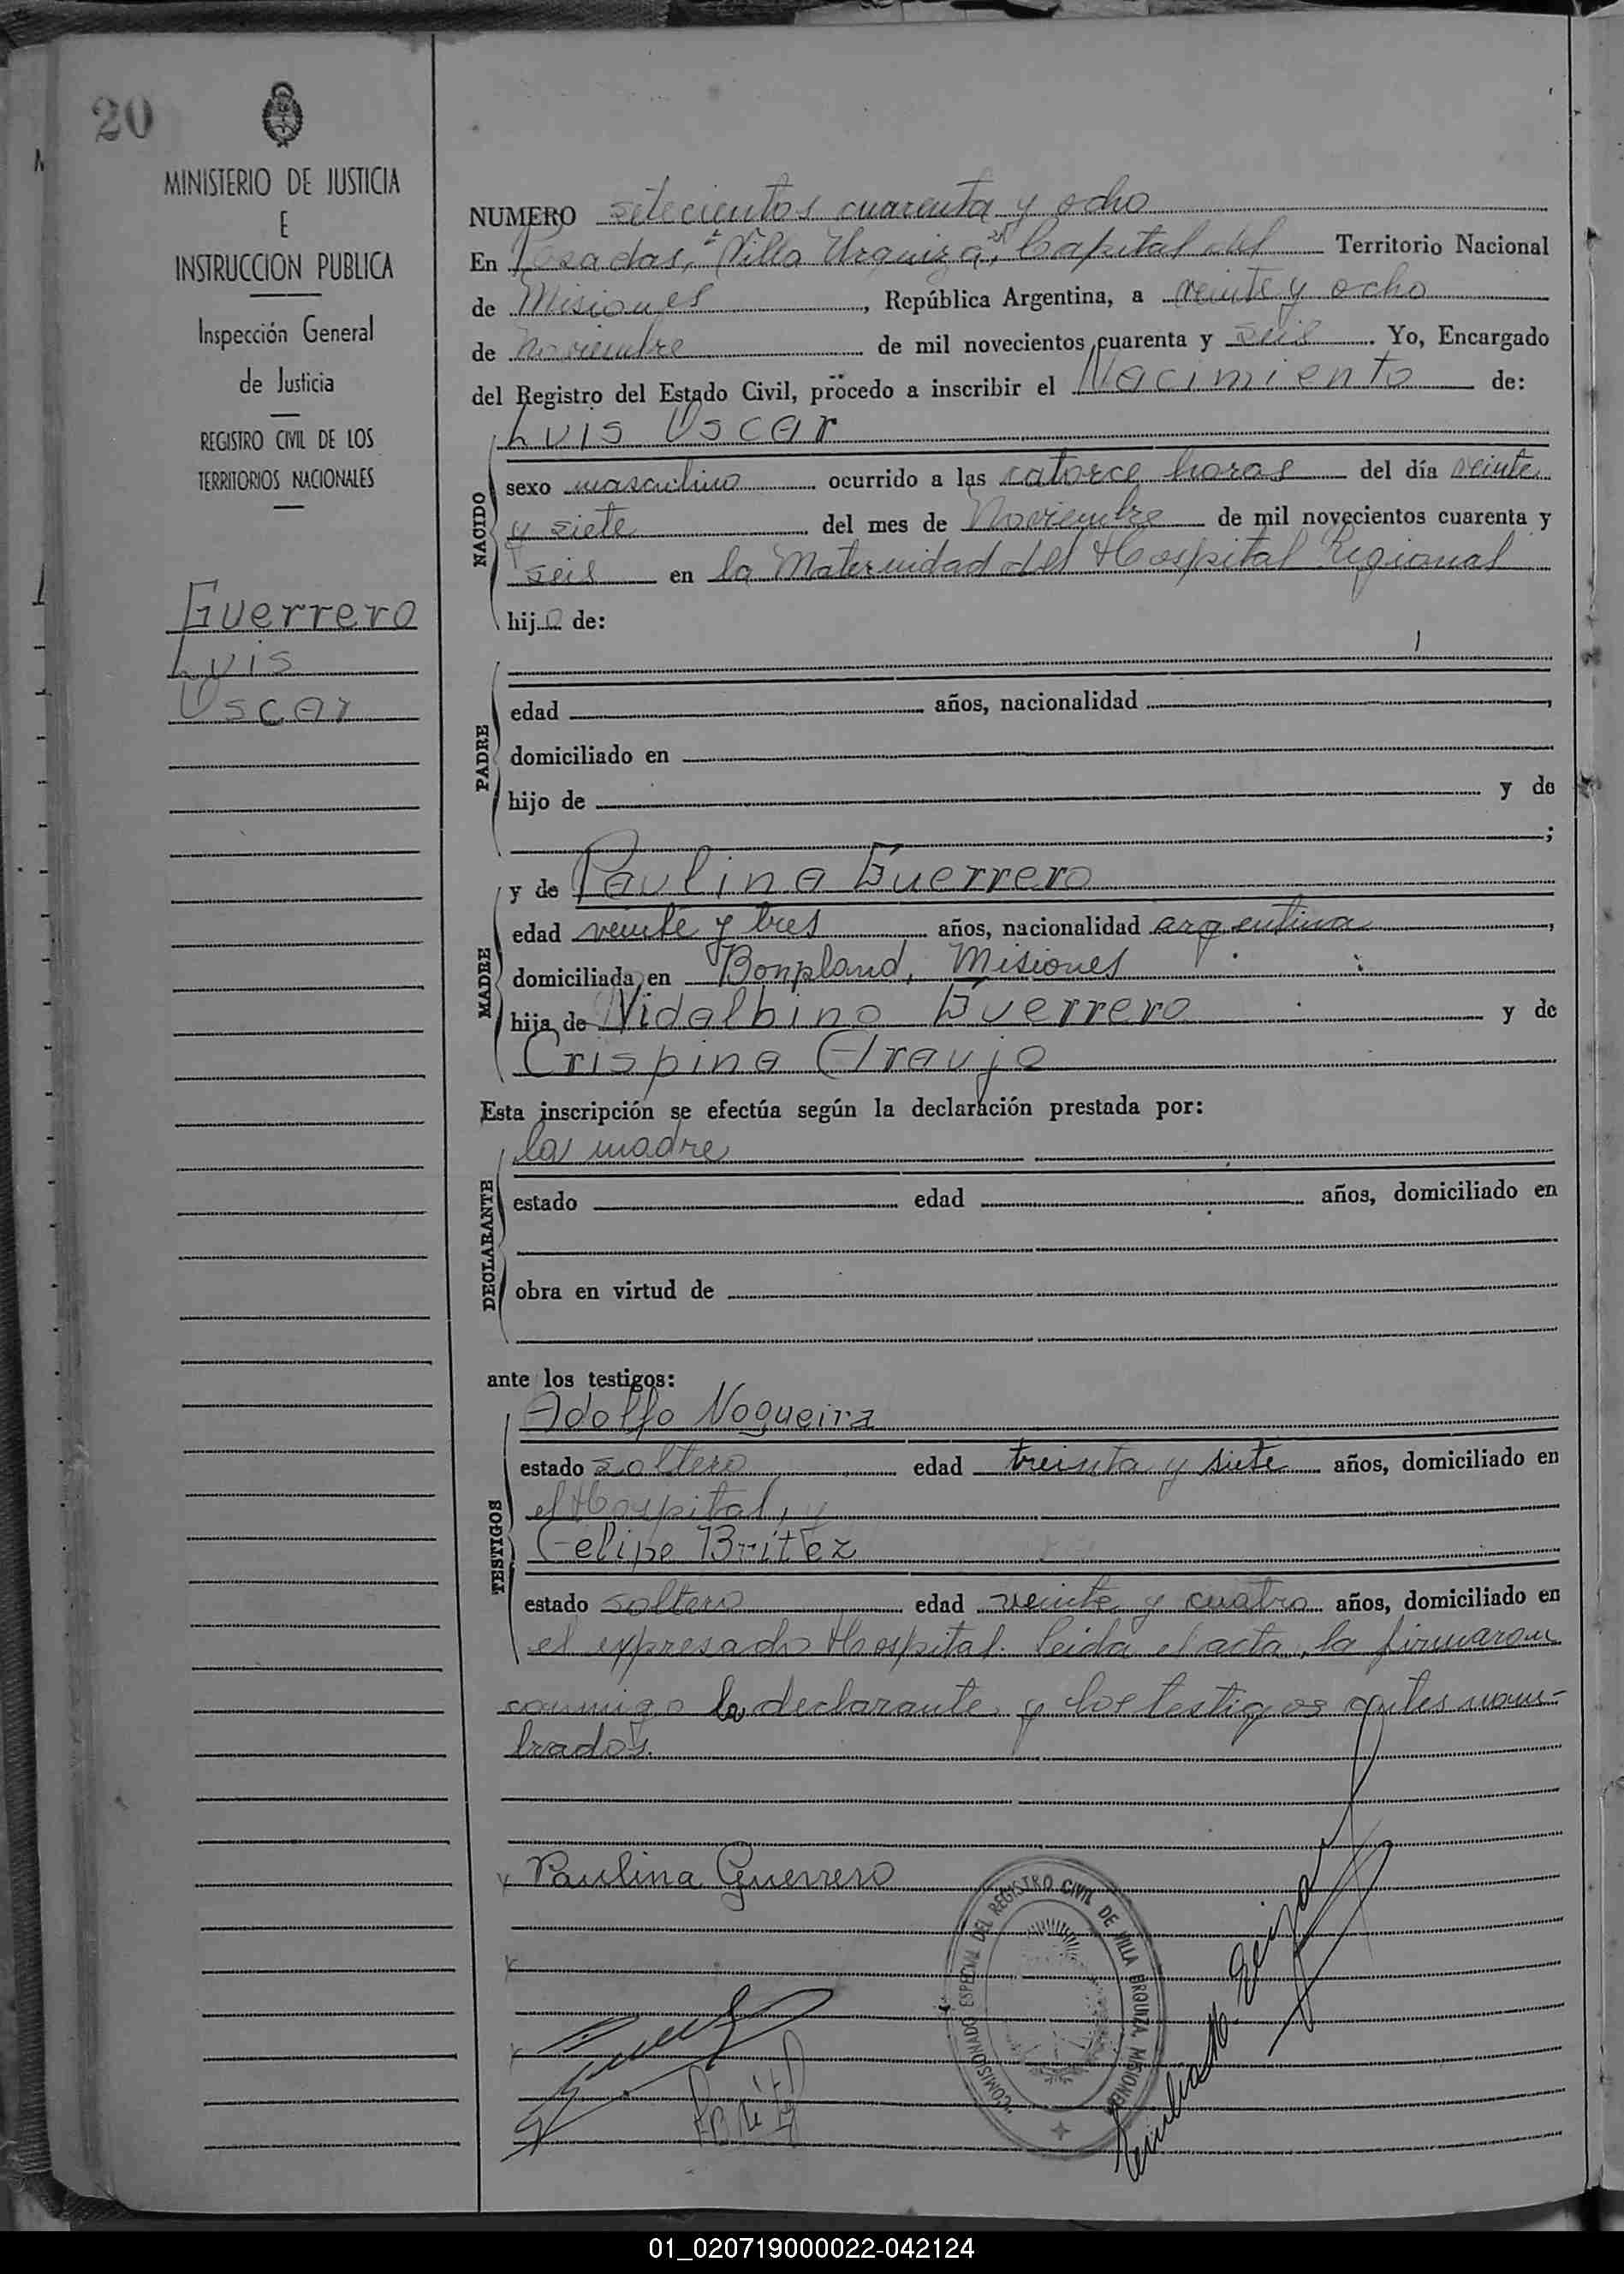 20
MINISTERIO DE JUSTICIA
E
INSTRUCCION PUBLICA
Inspección General
de Justicia
REGISTRO CIVIL DE LOS
TERRITORIOS NACIONALES
Guerrero
Luis
Oscar
NUMERO setecientos cuarenta y ocho
En Posadas, "Villa Urquiza", Capital del Territorio Nacional
de Misiones, República Argentina, a veinte y ocho
de Noviembre de mil novecientos cuarenta y seis. Yo, Encargado
del Registro del Estado Civil, procedo a inscribir el Nacimiento de:
Luis Oscar
NACIDO
sexo masculino ocurrido a las catorce horas del día veinte
y siete del mes de Noviembre de mil novecientos cuarenta y
seis en la Maternidad del Hospital Regional
hijo de:
PADRE
edad años, nacionalidad ,
domiciliado en
hijo de y de
;
MADRE
y de Paulina Guerrero
edad veinte y tres años, nacionalidad argentina,
domiciliada en Bonpland, Misiones
hija de Vidalbino Guerrero y de
Crispina Araujo
Esta inscripción se efectúa según la declaración prestada por:
la madre
DECLARANTE
estado edad años, domiciliado en
obra en virtud de
ante los testigos:
Adolfo Nogueira
TESTIGOS
estado soltero edad treinta y siete años, domiciliado en
el Hospital, y
Felipe Britez
estado soltero edad veinte y cuatro años, domiciliado en
el expresado Hospital. Leida el acta, la firmaron
conmigo la declarante y los testigos antes nom-
brados.
Paulina Guerrero
COMISIONADO ESPECIAL DEL REGISTRO CIVIL DE VILLA URQUIZA, MISIONES
01_020719000022-042124